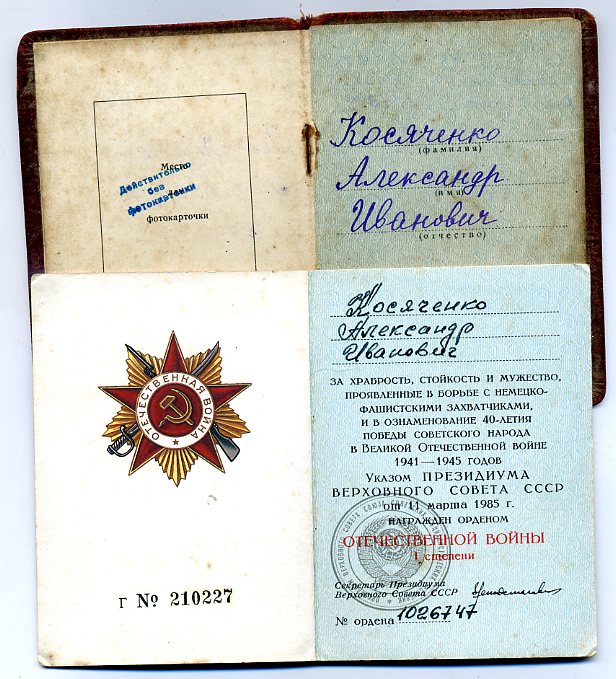 Место
для
фотокарточки
Действительно
без
фотокарточки
Косяченко
(фамилия)
Александр
(имя)
Иванович
(отчество)
ОТЕЧЕСТВЕННАЯ ВОЙНА
Г № 210227
Косяченко
Александр
Иванович
ЗА ХРАБРОСТЬ, СТОЙКОСТЬ И МУЖЕСТВО,
ПРОЯВЛЕННЫЕ В БОРЬБЕ С НЕМЕЦКО-
ФАШИСТСКИМИ ЗАХВАТЧИКАМИ,
И В ОЗНАМЕНОВАНИЕ 40-ЛЕТИЯ
ПОБЕДЫ СОВЕТСКОГО НАРОДА
В ВЕЛИКОЙ ОТЕЧЕСТВЕННОЙ ВОЙНЕ
1941—1945 ГОДОВ
УКАЗОМ ПРЕЗИДИУМА
ВЕРХОВНОГО СОВЕТА СССР
от 11 марта 1985 г.
НАГРАЖДЕН ОРДЕНОМ
ОТЕЧЕСТВЕННОЙ ВОЙНЫ
I степени
Секретарь Президиума
Верховного Совета СССР
№ ордена 1026747